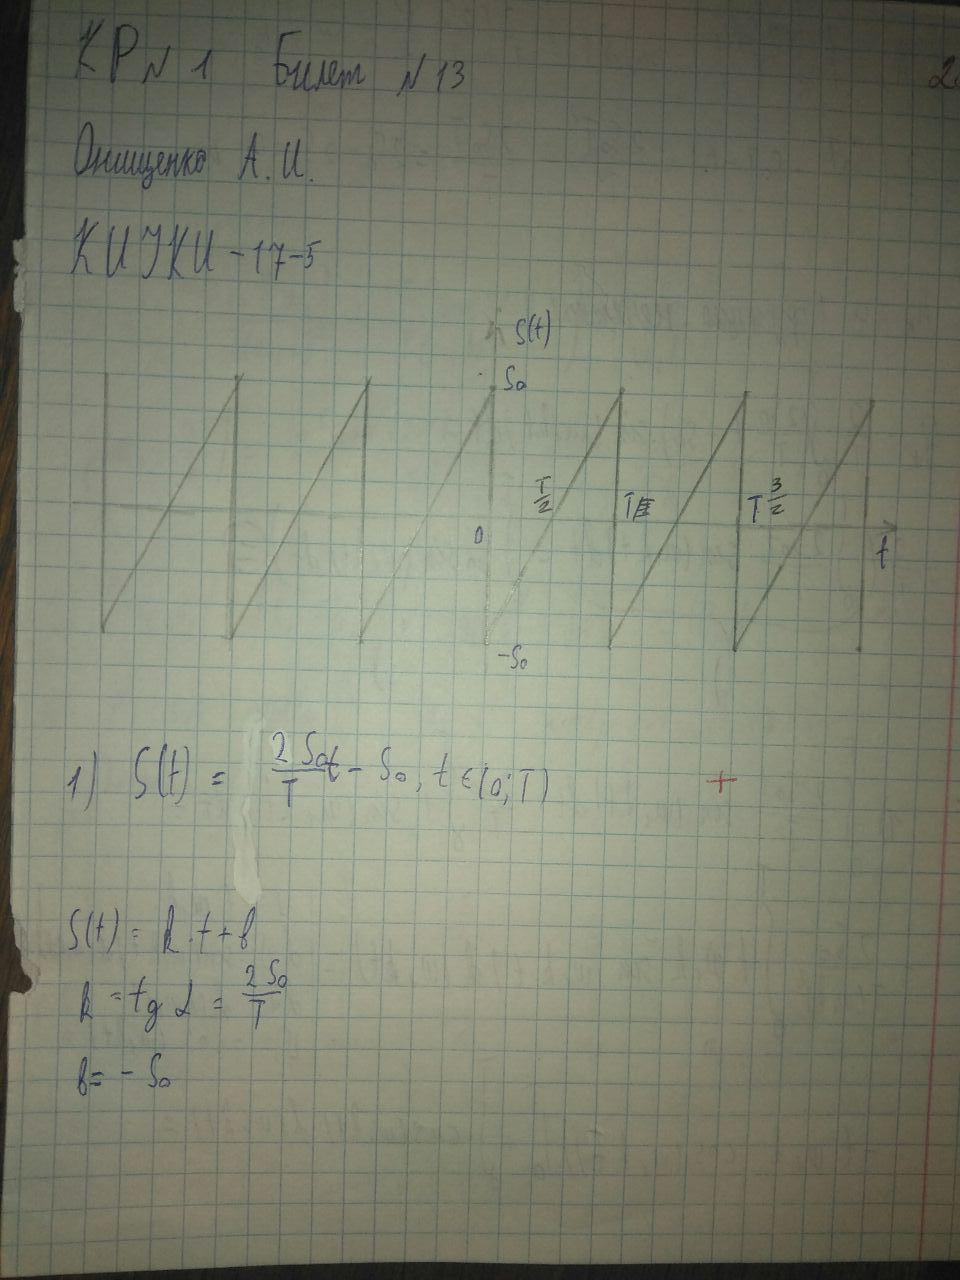 КР № 1 Билет № 13
Онищенко А.И.
КИУКИ-17-5
S(t)
S₀
T/2
T
T 3/2
0
t
-S₀
1) S(t) = 2S₀t/T - S₀, t ∈ (0; T) +
S(t) = k·t+b
k = tg α = 2S₀/T
b = - S₀